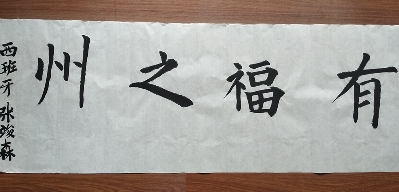 有福之州
西班牙 张骏森